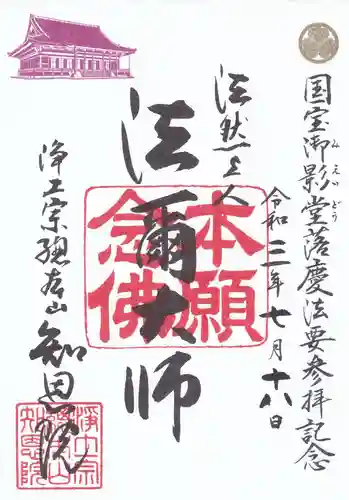 国宝御影堂落慶法要参拝記念
みえいどう
令和三年七月十八日
法然上人
法爾大師
本願
念佛
浄土宗総本山
知恩院
浄土宗
総本山
知恩院